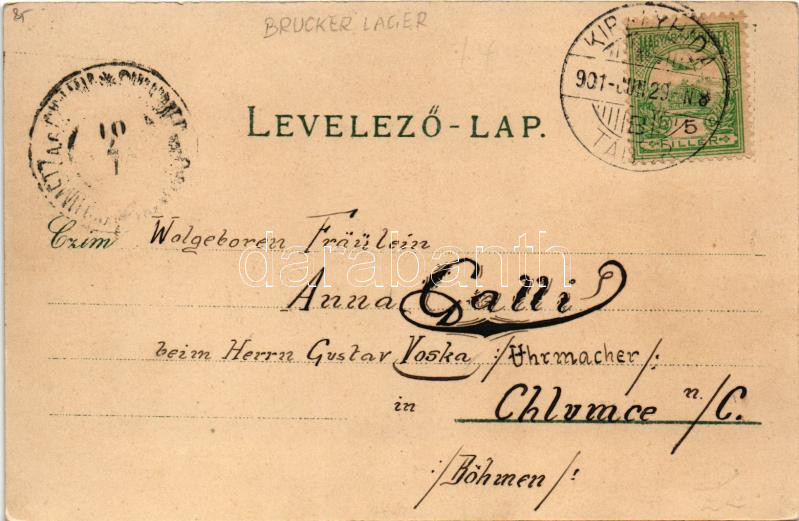 85
BRUCKER LAGER
KIRÁLYHIDA
901 JUN 29 N 8
TÁBOR
MAGYAR KIR. POSTA
5
FILLÉR
10
7
1
LEVELEZŐ-LAP.
Czim Wolgeboren Fräulein
darabanth
Anna Galli
beim Herrn Gustav Voska /:Uhrmacher/:
in Chlumce n./C.
:/Böhmen/: